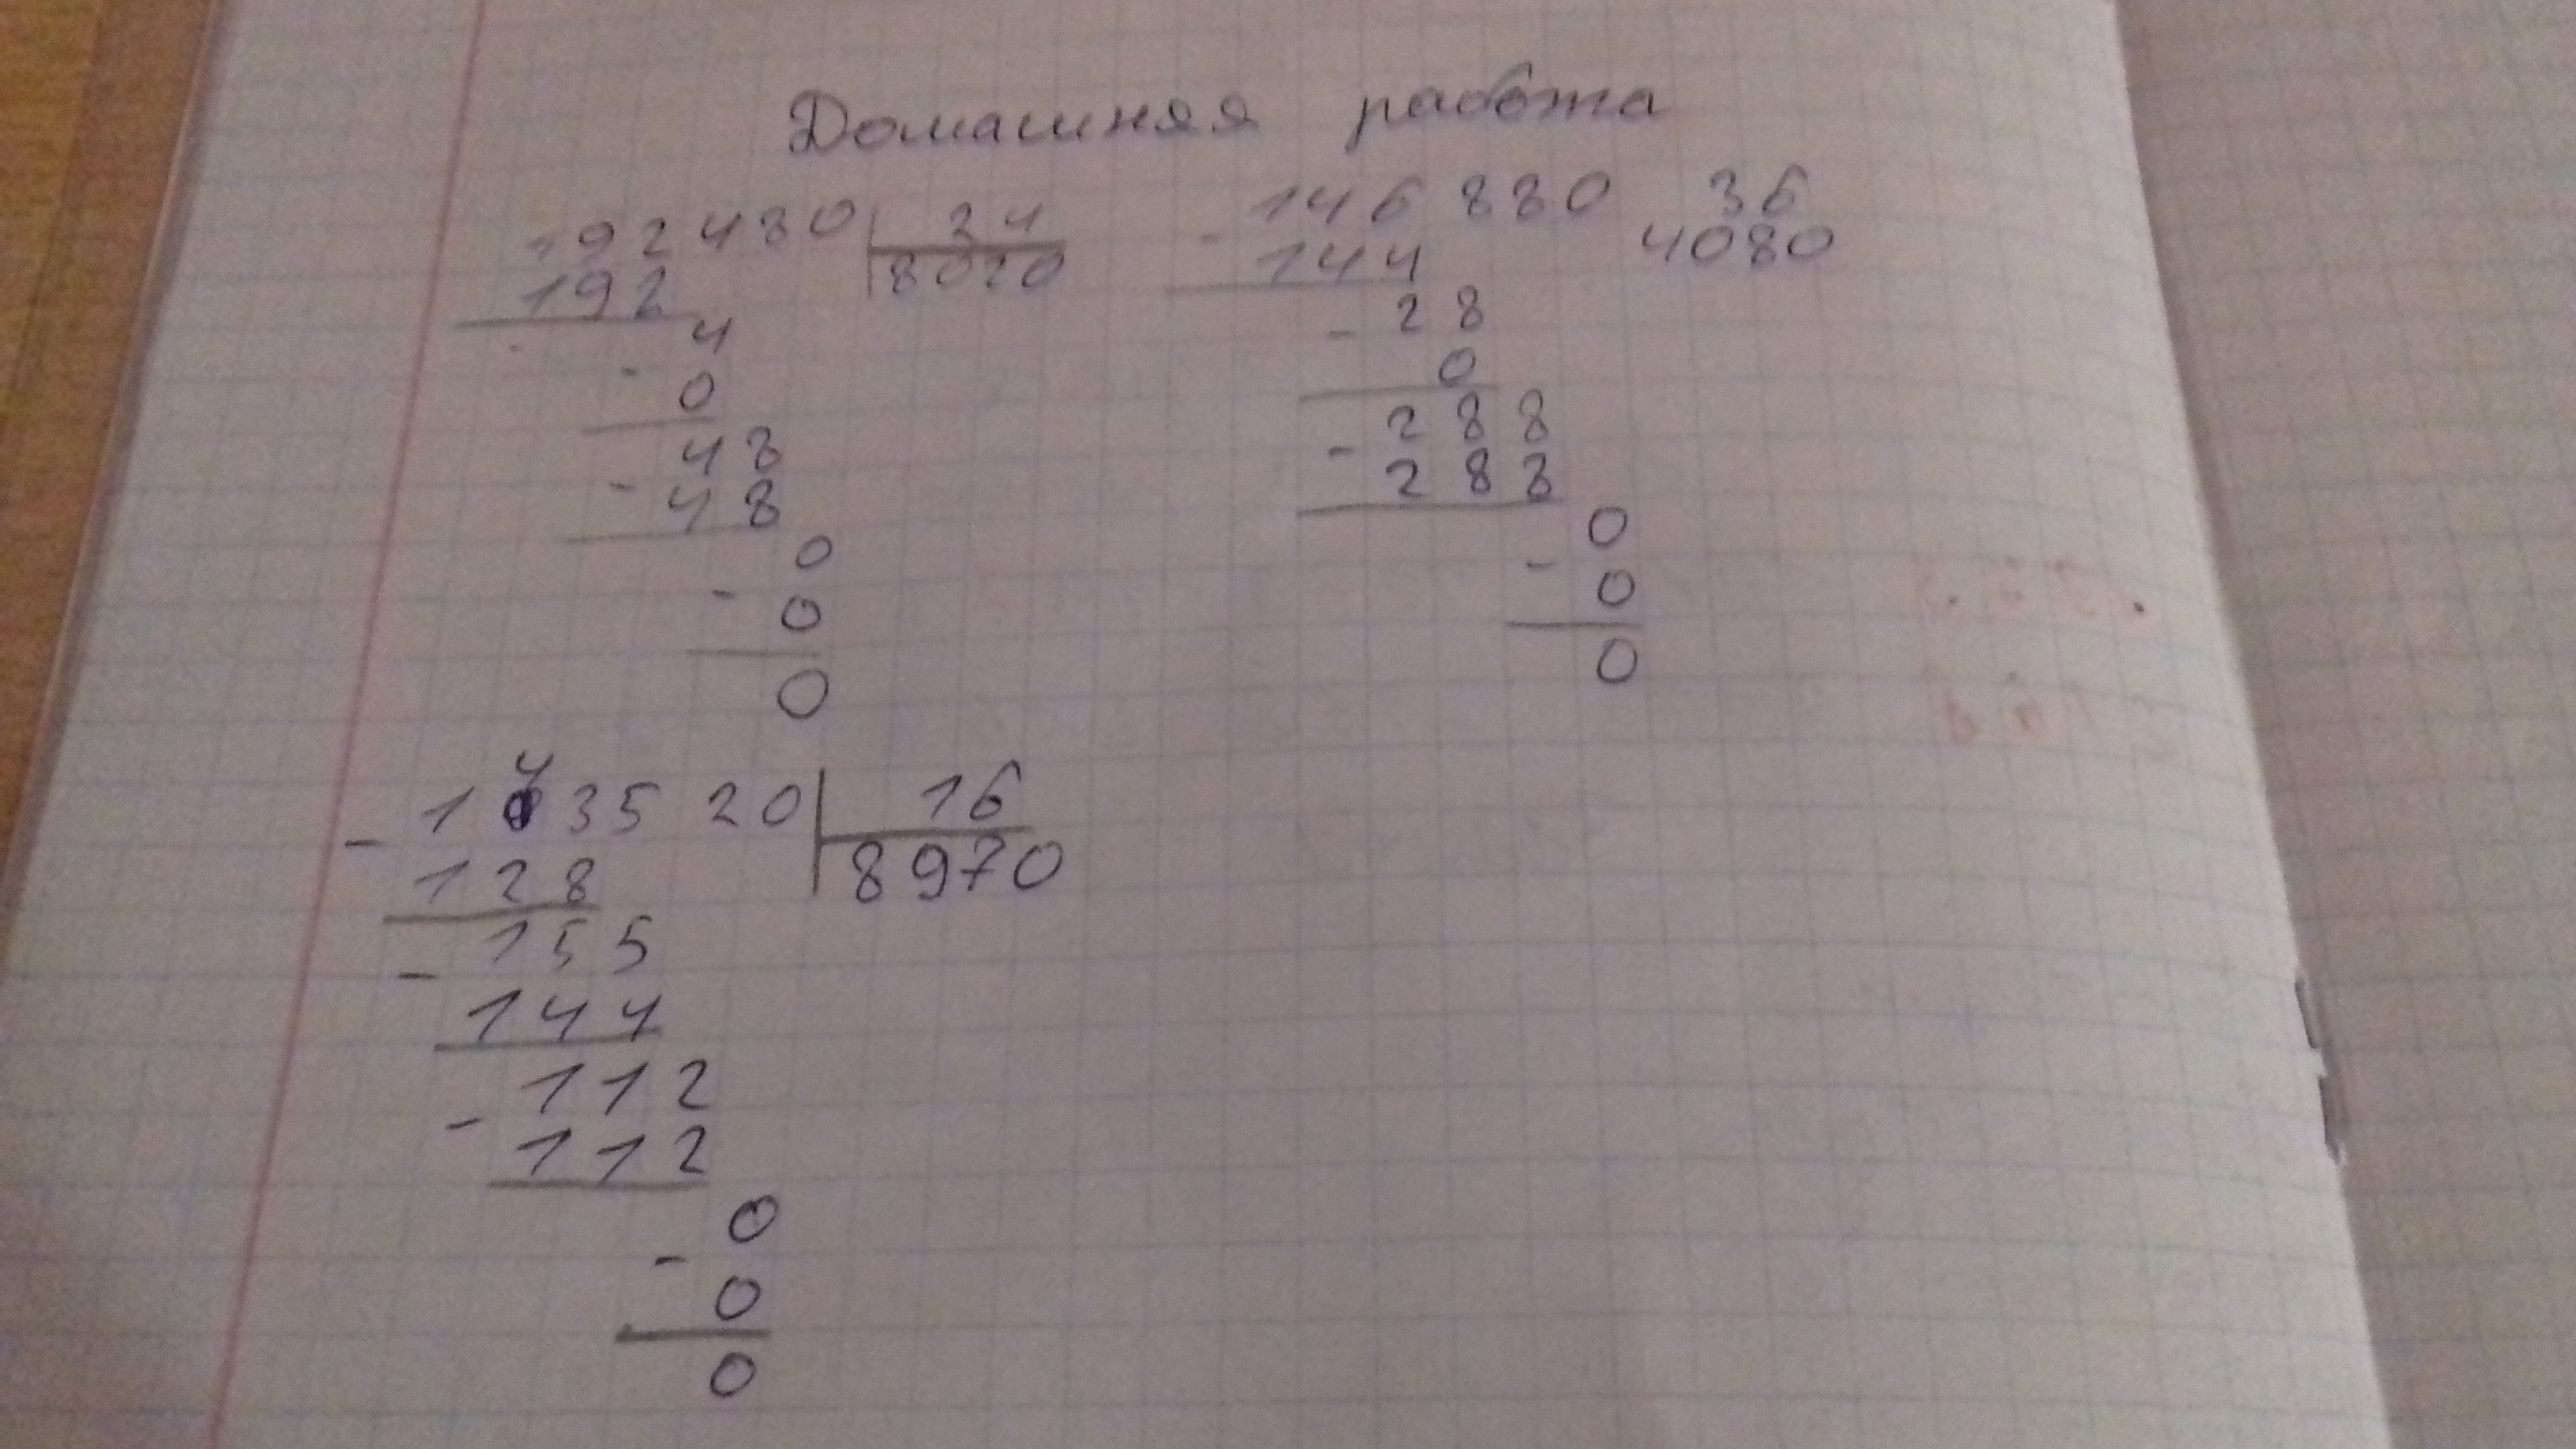 Домашняя работа
192480 24
192 8020
4
- 0
48
- 48
0
- 0
0
- 146880 36
144 4080
- 28
0
- 288
288
0
- 0
0
4
- 1 35 20 16
128 8970
- 155
144
- 112
112
0
- 0
0